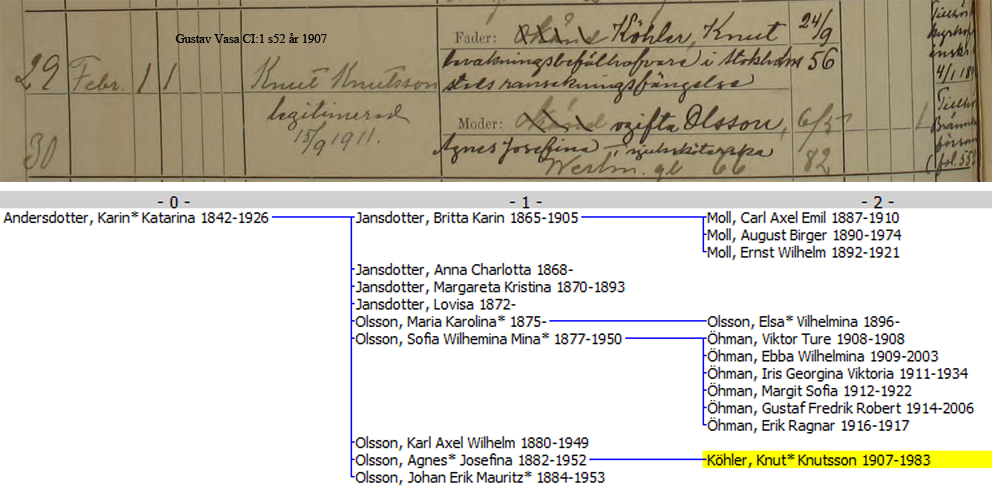 Gustav Vasa CI:1 s52 år 1907
29 Febr. 1 1 Knut Knutsson
legitimerad
15/9 1911.
30
Fader: Köhler, Knut 24/9
bevakningsbefälhafvare i Stockholms 56
stads ransakningsfängelse
Moder: ogifta Olsson, 6/5
Agnes Josefina 82
66
- 0 - - 1 - - 2 -
Andersdotter, Karin* Katarina 1842-1926 Jansdotter, Britta Karin 1865-1905 Moll, Carl Axel Emil 1887-1910
Moll, August Birger 1890-1974
Moll, Ernst Wilhelm 1892-1921
Jansdotter, Anna Charlotta 1868-
Jansdotter, Margareta Kristina 1870-1893
Jansdotter, Lovisa 1872-
Olsson, Maria Karolina* 1875- Olsson, Elsa* Vilhelmina 1896-
Olsson, Sofia Wilhemina Mina* 1877-1950 Öhman, Viktor Ture 1908-1908
Öhman, Ebba Wilhelmina 1909-2003
Öhman, Iris Georgina Viktoria 1911-1934
Öhman, Margit Sofia 1912-1922
Öhman, Gustaf Fredrik Robert 1914-2006
Öhman, Erik Ragnar 1916-1917
Olsson, Karl Axel Wilhelm 1880-1949
Olsson, Agnes* Josefina 1882-1952 Köhler, Knut* Knutsson 1907-1983
Olsson, Johan Erik Mauritz* 1884-1953